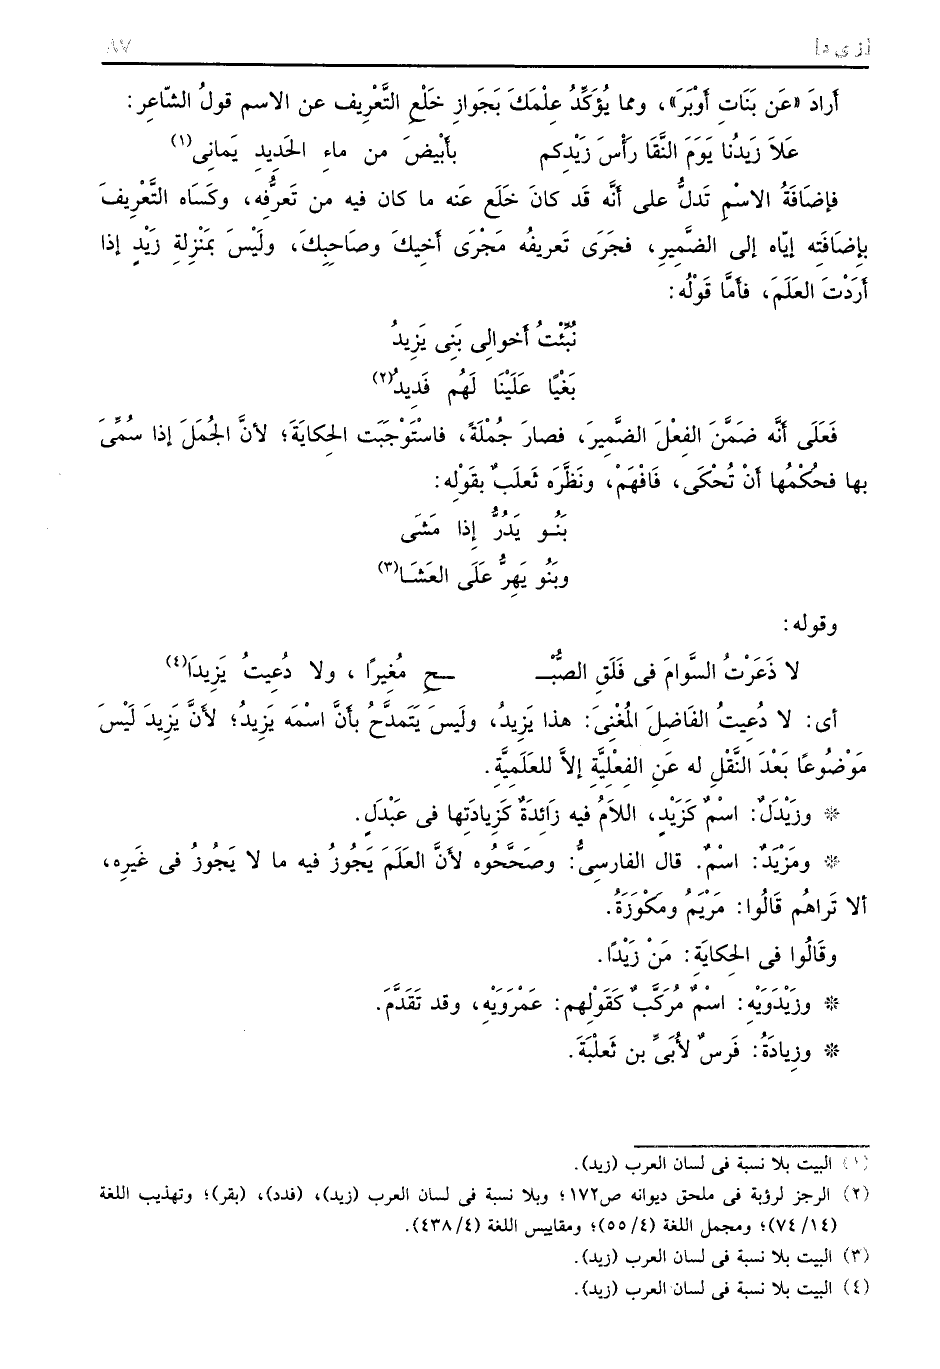 [زى د] ٨٧
أرادَ «عَن بَنَاتِ أوْبَرَ»، ومما يُؤكِّدُ عِلْمَكَ بَجَوازِ خَلْعِ التَّعْرِيف عن الاسم قولُ الشّاعر:
عَلاَ زَيَدُنا يَومَ النَّقَا رأْسَ زَيْدِكم بأبْيضَ من ماء الحَديدِ يَمانى(١)
فإضَافَةُ الاسْمِ تَدلُّ على أنَّه قد كانَ خلَع عنه ما كان فيه من تَعرُّفِه، وكَسَاه التَّعْرِيفَ
بإضَافَتِه إيّاه إلى الضَّميرِ، فجَرَى تَعريفُه مَجْرَى أخيكَ وصَاحِبِكَ، ولَيْسَ بمَنْزِلةِ زَيْدٍ إذا
أردْتَ العَلَمَ، فأمَّا قَوْلُه:
نُبِّئْتُ أخوالِى بَنِى يَزِيدُ
بَغْيًا عَلَيْنَا لَهُم فَدِيدُ(٢)
فَعَلَى أنَّه ضَمَّنَ الفِعْلَ الضَّميرَ، فصارَ جُمْلَةً، فاسْتَوْجَبَت الحِكايَةَ؛ لأنَّ الجُمَلَ إذا سُمِّىَ
بها فحُكْمُها أنْ تُحْكَى، فَافْهَمْ، ونَظَّرَه ثَعلَبٌ بقَوْلِه:
بَنُو يَدُرُّ إذا مَشَى
وبَنُو يَهِرُّ عَلَى العَشَا(٣)
وقوله:
لا ذَعَرْتُ السَّوامَ فى فَلَقِ الصُّبْـ ـحِ مُغِيرًا ، ولا دُعِيتُ يَزِيدَا(٤)
أى: لا دُعِيتُ الفَاضِلَ المُغْنِىَ: هذا يَزِيدُ، ولَيسَ يَتَمدَّحُ بأنَّ اسْمَه يَزِيدُ؛ لأنَّ يَزِيدَ لَيْسَ
مَوْضُوعًا بَعْدَ النَّقْلِ له عَنِ الفِعْلِيَّةِ إلاَّ للعَلَمِيَّةِ.
* وزَيْدَلٌ: اسْمٌ كَزَيْدٍ، اللاَمُ فيه زَائدَةٌ كَزِيادَتِها فى عَبْدَلٍ.
* ومَزْيَدٌ: اسْمٌ. قال الفارسىُّ: وصَحَّحُوه لأنَّ العَلَمَ يَجُوزُ فيه ما لا يَجُوزُ فى غَيرِه،
ألا تَراهُم قَالُوا: مَرْيَمُ ومَكْوَزَةُ.
وقَالُوا فى الحِكايَةِ: مَنْ زَيْدًا.
* وزَيْدَوَيْهِ: اسْمٌ مُرَكَّبٌ كَقَوْلِهم: عَمْرَوَيْهِ، وقد تَقَدَّمَ.
* وزِيادَةُ: فَرسٌ لأُبَىِّ بن ثَعلبَةَ.
(١) البيت بلا نسبة فى لسان العرب (زيد).
(٢) الرجز لرؤبة فى ملحق ديوانه ص١٧٢؛ وبلا نسبة فى لسان العرب (زيد)، (فدد)، (بقر)؛ وتهذيب اللغة
(٧٤/١٤)؛ ومجمل اللغة (٥٥/٤)؛ ومقاييس اللغة (٤٣٨/٤).
(٣) البيت بلا نسبة فى لسان العرب (زيد).
(٤) البيت بلا نسبة فى لسان العرب (زيد).